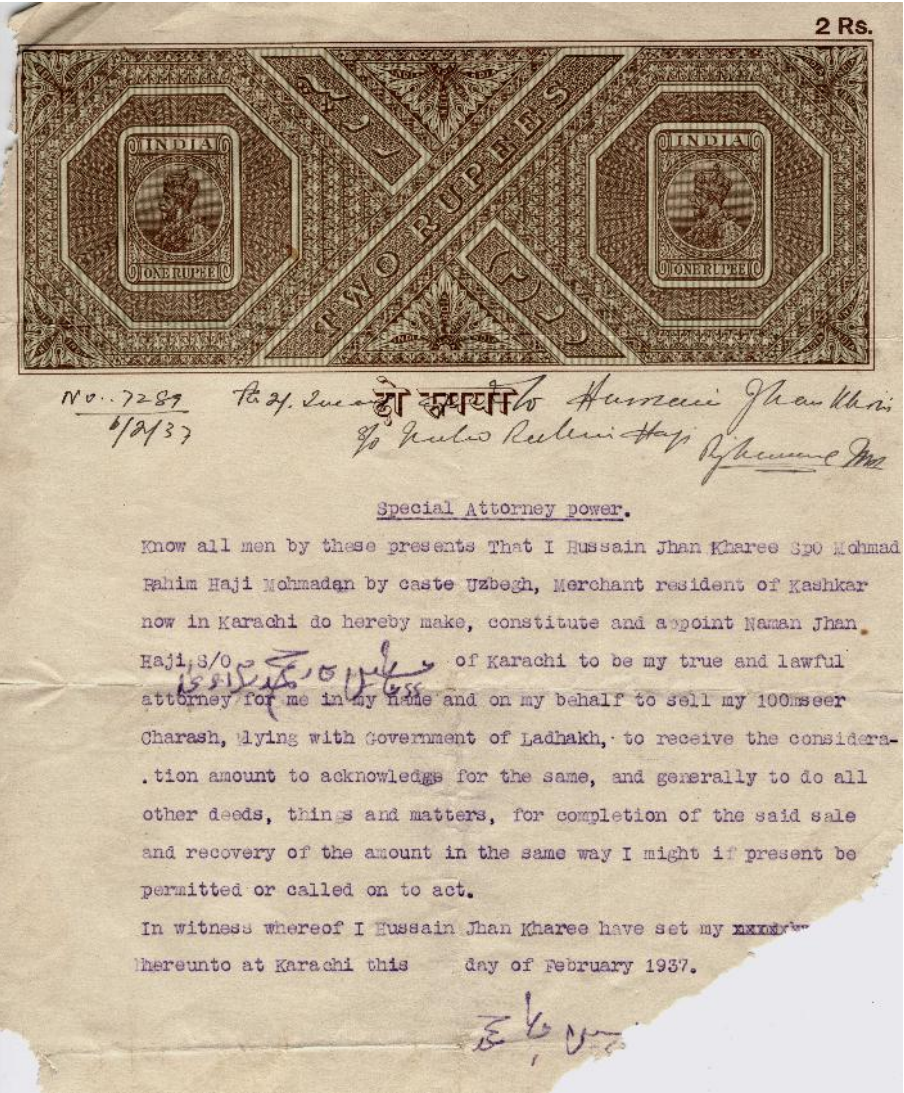 2 Rs.
INDIA
ONE RUPEE
TWO RUPEES
INDIA
ONE RUPEE
दो रुपया
No. 7289
6/2/37
to Hussain Jhan Khari
S/o Haji
Special Attorney power.
Know all men by these presents That I Hussain Jhan Kharee SpO Mohmad
Rahim Haji Mohmadan by caste Uzbegh, Merchant resident of Kashkar
now in Karachi do hereby make, constitute and appoint Naman Jhan
Haji S/O of Karachi to be my true and lawful
attorney for me in my name and on my behalf to sell my 100mseer
Charash, lying with Government of Ladhakh, to receive the considera-
.tion amount to acknowledge for the same, and generally to do all
other deeds, things and matters, for completion of the said sale
and recovery of the amount in the same way I might if present be
permitted or called on to act.
In witness whereof I Hussain Jhan Kharee have set my
hereunto at Karachi this day of February 1937.